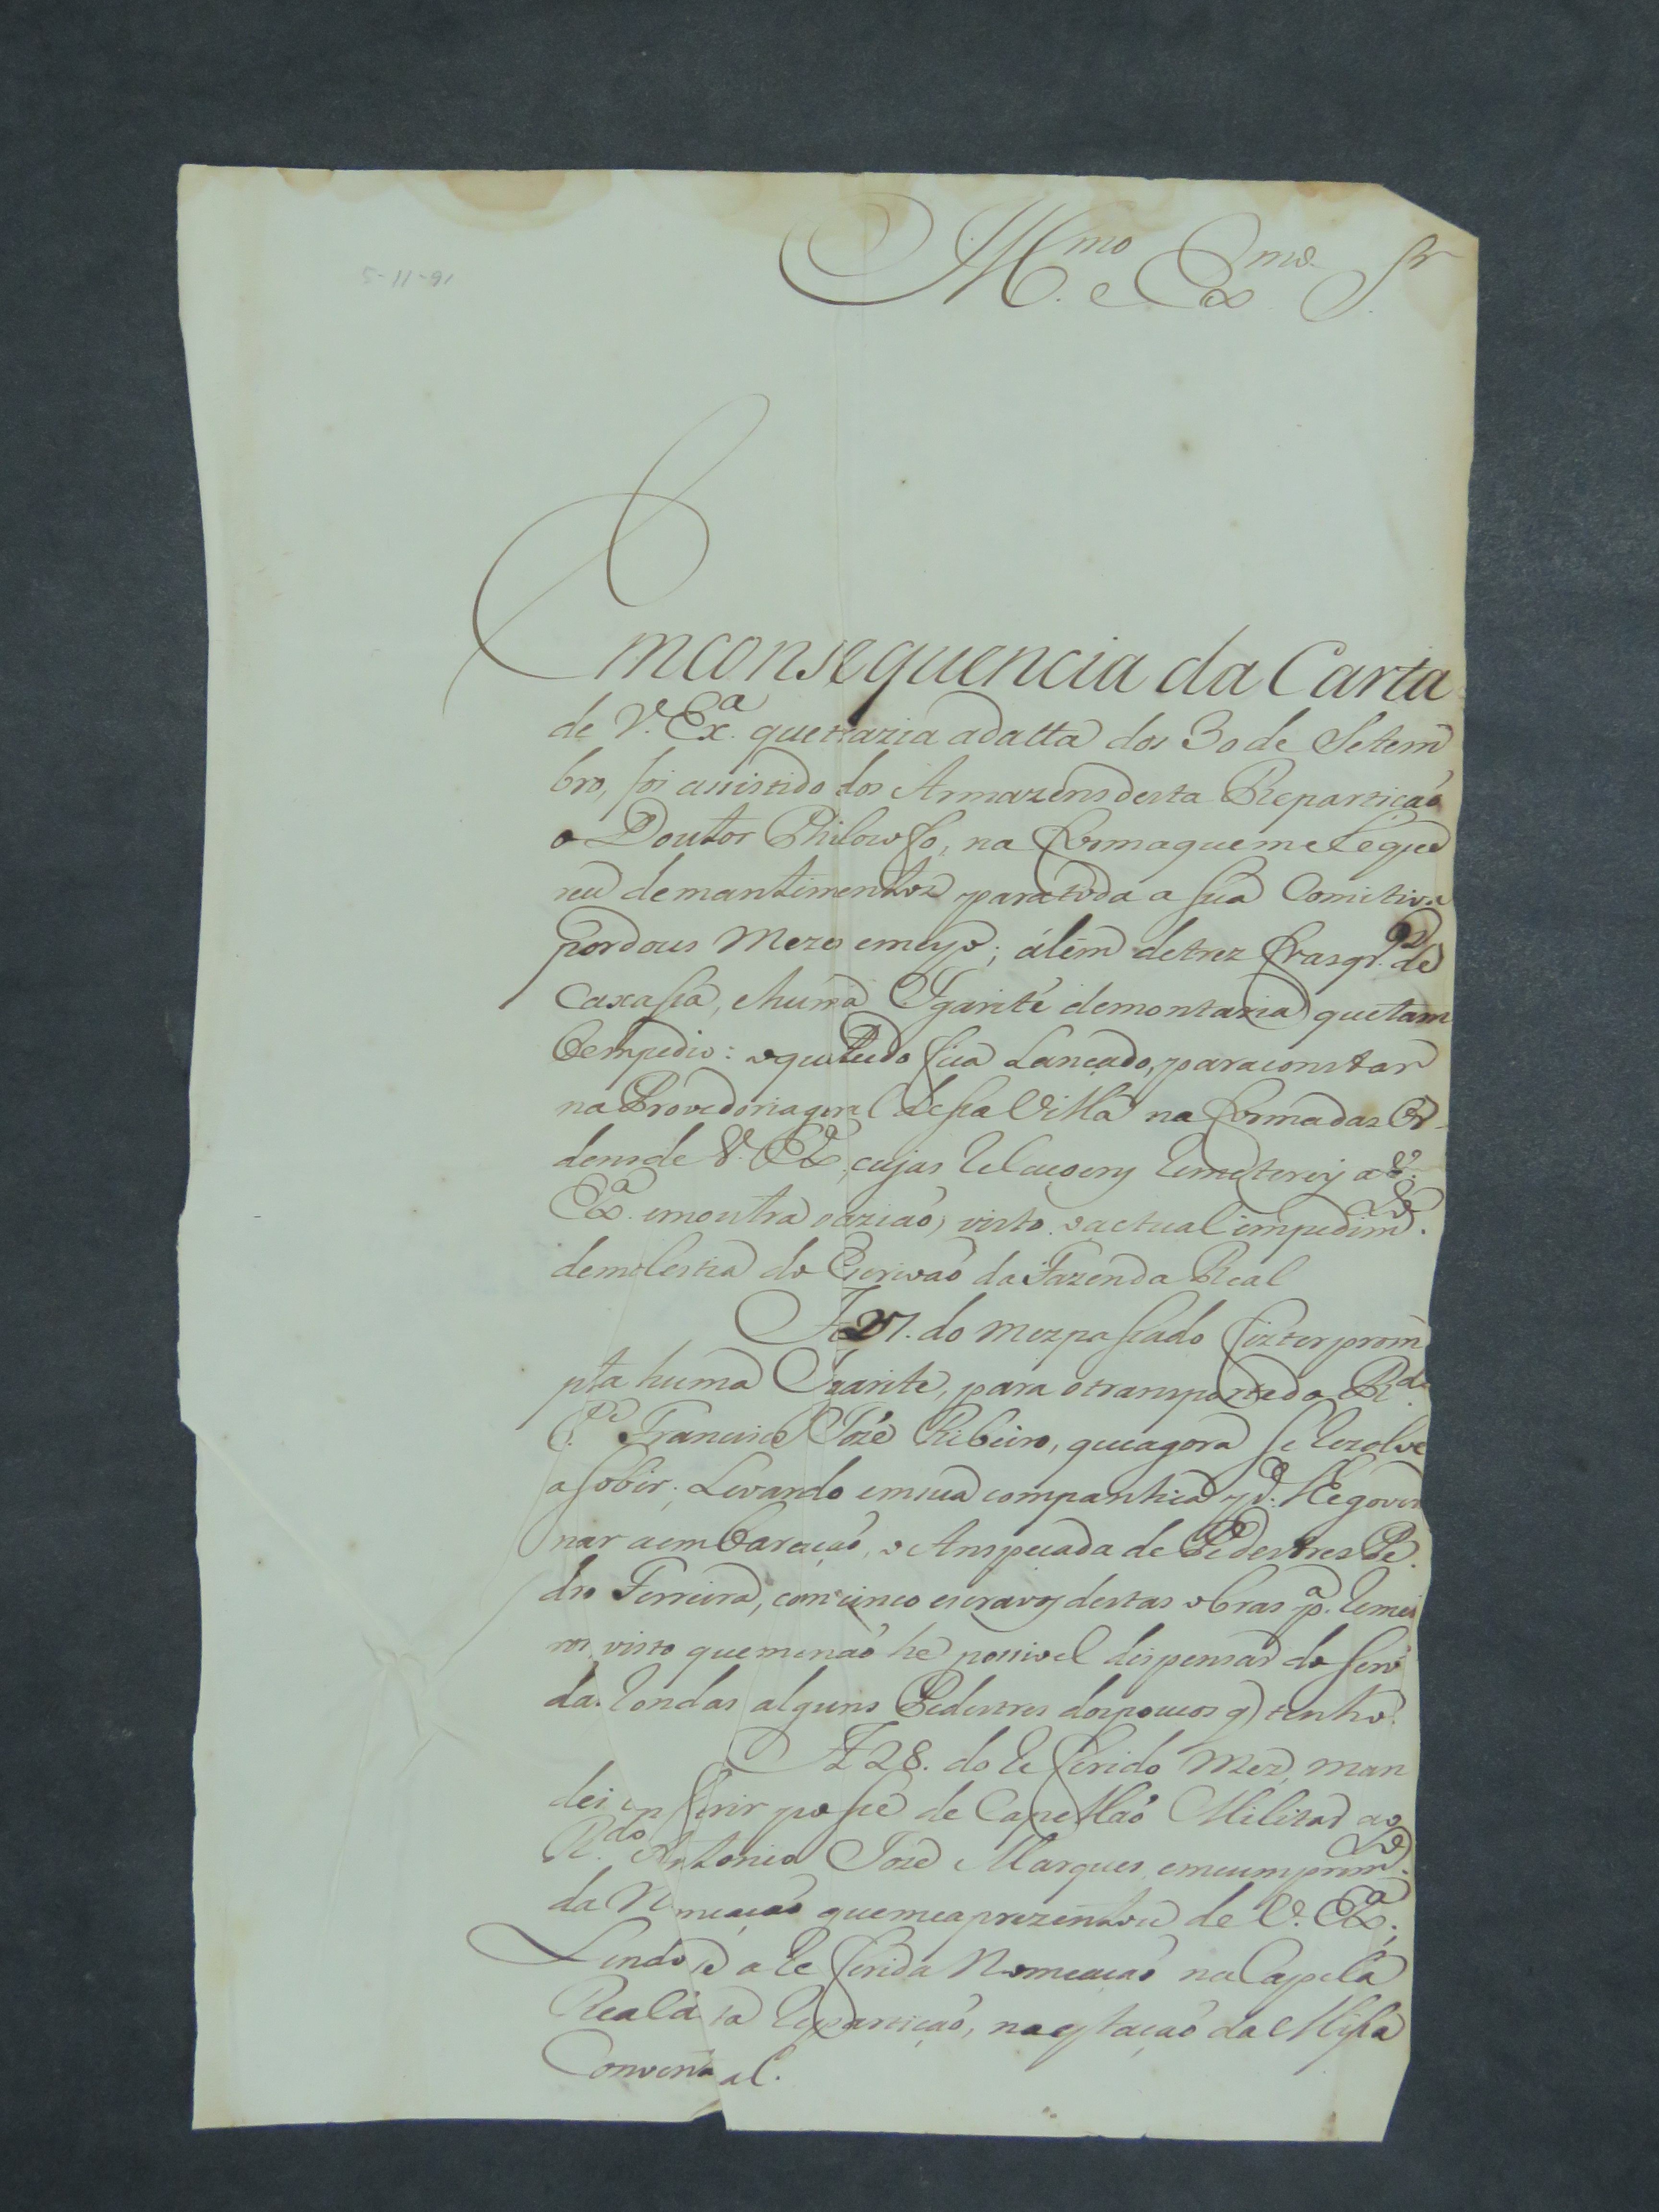 Ill.mo e Ex.mo Sr
5-11-91
Em consequencia da Carta
de V. Ex.a que trazia a datta dos 30 de Setem
bro, foi assistido dos Armazens desta Repartição
o Doutor Philosofo, na forma que me reque
reu de mantimentos para toda a sua Comitiva
por dous Mezes e meyo; álêm de trez frasq.ras de
Caxassa, e huma Igarité de montaria que tam
bem pedio: o que tudo fica Lançado, para constar
na Provedoria geral dessa Villa na forma das Or
dens de V. Ex.a, cujas relaçoens remeterey a V.
Ex.a em outra ocazião, visto o actual impedim.to
de molestia do Escrivaõ da Fazenda Real
A 27. do mez passado fiz ter prom
pta huma Igarite, para o transporte do R.do
P.e Francisco Jozé Ribeiro, que agora se rezolve
a sobir; Levando em sua companhia p.a lhe gover
nar a embarcaçaõ, o Anspecada de Pedestres Pe
dro Ferreira, com cinco escravos destas obras p.a remei
ros, visto que me naõ he possivel dispensar do serv.o
das rondas alguns Pedestres dos poucos q tenho.
A 28. do referido Mez, man
dei conferir posse de Capellaõ Militar ao
R.do Antonio Jozé Marques, em cumprim.to
da Nomeaçaõ que me aprezentou de V. Ex.a;
Lendo se a referida Nomeaçaõ na Capela
Real desta repartiçaõ, na estaçaõ da Missa
Conventual.